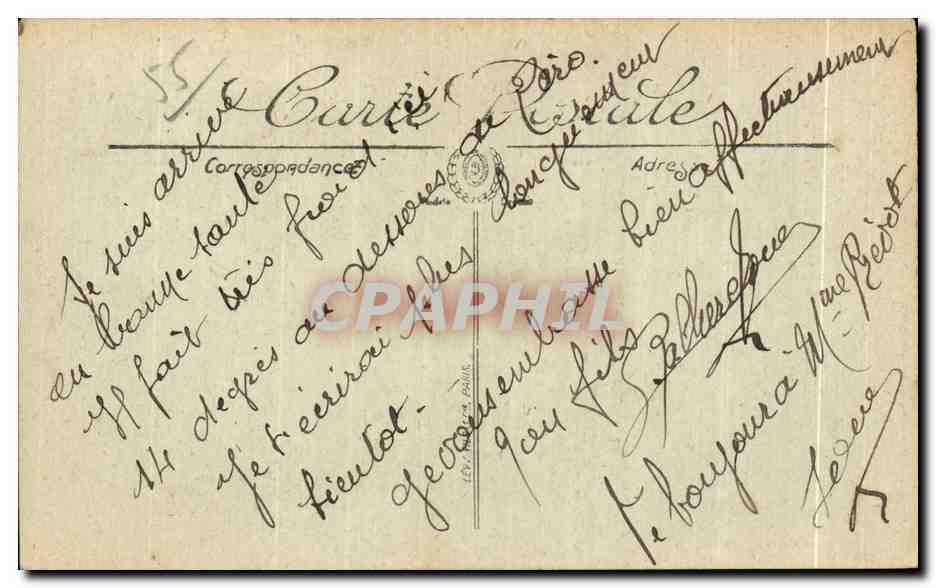 55/
Carte Postale
Correspondance
Adresse
CPAPHIL
Je suis arrivé
en bonne santé
il fait très froid ici
14 degrés au dessous de Zéro.
Je t'écrirai plus longuement
bientot.
Je vous embrasse bien affectueusement
Ton fils
Je bonjour à Mme
PARIS